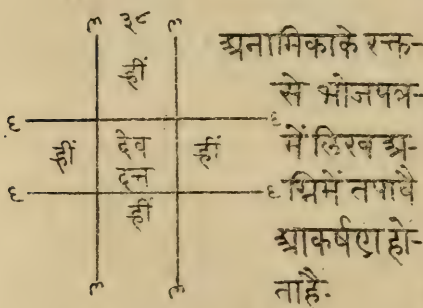 ३८
ह्रीं
ह्रीं देव ह्रीं
दत्त
ह्रीं
अनामिकाके रक्त-
से भोजपत्र-
में लिख अ-
ग्निमें तपावै
आकर्षण हो-
ताहै.